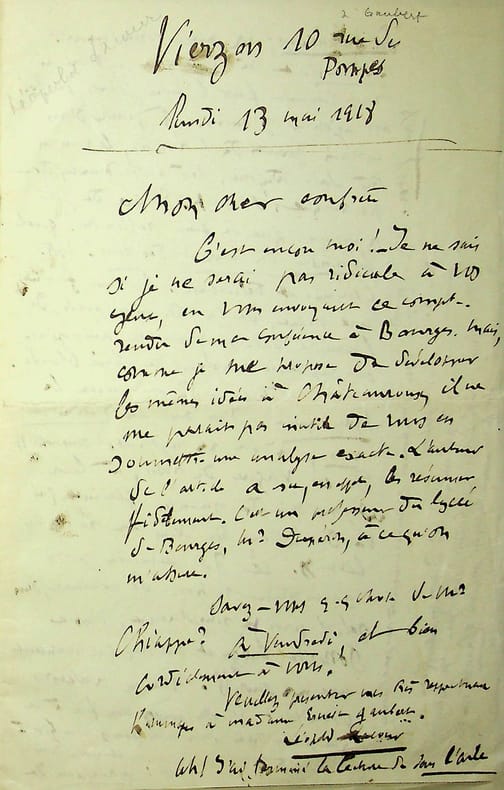 à Gaubert
Vierzon 10 rue du
Pampes
Lundi 13 mai 1918
Mon cher confrère
C'est encore moi ! - Je ne sais
si je ne serai pas ridicule à vos
yeux, en vous envoyant ce compte-
rendu de ma conférence à Bourges. Mais,
comme je me propose de développer
les mêmes idées à Châteauroux, il ne
me paraît pas inutile de vous en
soumettre une analyse exacte. L'auteur
de l'article a su, en effet, les résumer
fidèlement. C'est un professeur du lycée
de Bourges, Mr à ce qu'on
m'assure.
Savez-vous q-q chose de Mr
Chiappe? A Vendredi, et bien
cordialement à vous !
Veuillez présenter mes très respectueux
hommages à madame Ernest Gaubert.
Léopold
Ah! J'ai terminé la lecture de Sous l'